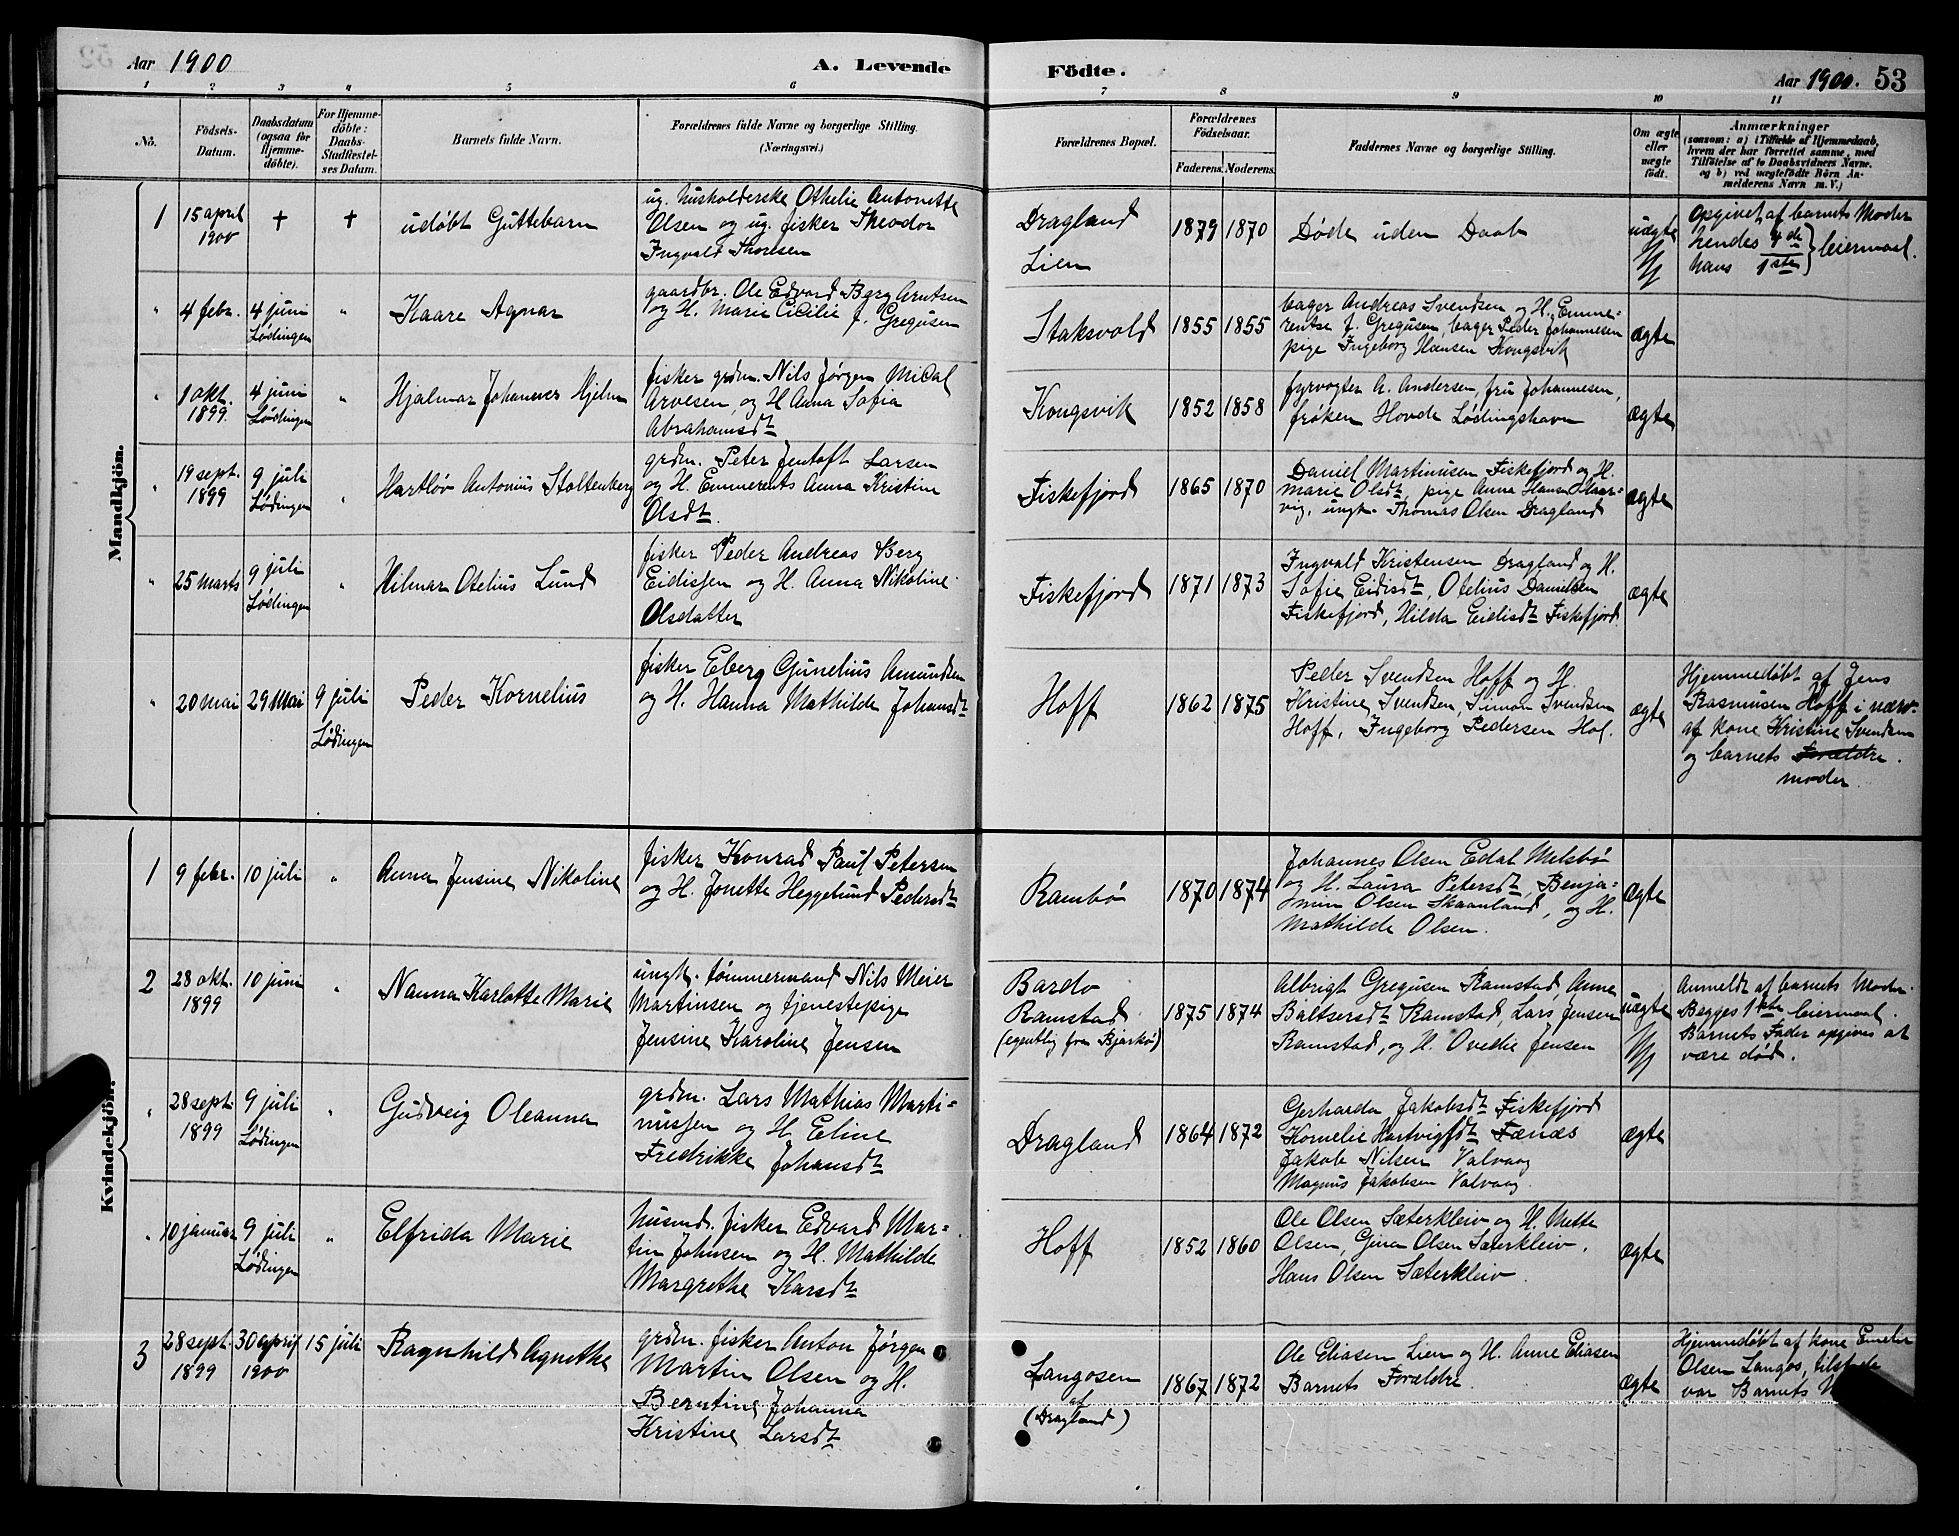 Aar 1900
A. Levende
Födte.
Aar 1900. 53
1 2 3 4 5 6 7 8 9 10 11
No.
Födsels-
Datum.
Daabsdatum
(ogsaa for
Hjemme-
döbte).
For Hjemme-
döbte:
Daabs-
Stadfæstel-
ses Datum.
Barnets fulde Navn.
Forældrenes fulde Navne og borgerlige Stilling.
(Næringsvei.)
Forældrenes Bopæl.
Forældrenes
Födselsaar.
Faderens. Moderens.
Faddernes Navne og borgerlige Stilling.
Om ægte
eller
uægte
födt.
Anmærkninger
(saasom: a) i Tilfælde af Hjemmedaab,
hvem der har forrettet samme, med
Tilföielse af to Daabsvidners Navne.
og b) ved uægtefödte Börn An-
melderens Navn m. V.)
Mandkjön.
1
15 april
1900
+
+
udøbt Guttebarn
ug. husholderske Othelie Antonette
Olsen og ug. fisker Theodor
Ingvald Thorsen
Dragland
Lien
1879 1870
Døde uden Daab
uægte
Opgivet af barnets Moder
hendes 4de } leiermaal.
hans 1ste
" 4 febr.
4 juni
Lødingen
"
Kaare Agnar
gaardbr. Ole Edvard Berg Arntsen
og H. Marie Cicilie f. Gregusen
Staksvold
1855 1855
bager Andreas Svendsen og H. Emme-
rentse f. Gregusen, bager Peder Johannesen
pige Ingeborg Hansen Kongsvik
ægte
" 1 okt.
1899.
4 juni
Lødingen
"
Hjalmar Johannes Hjelm
fisker grdm. Nils Jørgen Mical
Arvesen, og H Anna Sofia
Abrahamsdt
Kongsvik
1852 1858
fyrvogter A. Andersen, fru Johannesen,
frøken Hovde Lødingshavn
ægte
" 19 sept.
1899
9 juli
Lødingen
"
Hartløv Antonius Stoltenberg
grdm. Peter Jentoft Larsen
og H. Emmerents Anna Kristine
Olsdt.
Fiskefjord
1865 1870
Daniel Martinusen Fiskefjord og H.
Marie Olsdt, pige Anna Hansen Kaar-
vig, ungk. Thomas Olsen Dragland
ægte
" 25 marts
9 juli
Lødingen
"
Hilmar Otelius Lund
fisker Peder Andreas Berg
Eidissen og H. Anna Nikoline
Olsdatter
Fiskefjord
1871 1873
Ingvald Kristensen Dragland og H.
Sofie Eidisdt, Otelius Danielsen
Fiskefjord, Hilda Eidisdt Fiskefjord.
ægte
" 20 mai
29 Mai
9 juli
Lødingen
Peder Kornelius
fisker Eberg Gunelius Amundsen
og H. Hanna Mathilde Johansdt
Hoff
1862 1875
Peder Svendsen Hoff og H.
Kristine Svendsen, Simon Svendsen
Hoff, Ingeborg Pedersen Hol.
ægte
Hjemmedøbt af Jens
Rasmusen Hoff i nærv.
af kone Kristine Svendsen
og barnets Forældre.
moder
Kvindekjön.
1 9 febr. 10 juli "
Anna Jensine Nikoline
fisker Konrad Paul Petersen
og H. Jonette Heggelund Pedersdt
Rambø
1870 1874
Johannes Olsen Edal Melsbø
og H. Laura Petersdt, Benja-
min Olsen Skaanland, og H.
Mathilde Olsen.
ægte
2 28 okt.
1899
10 juni "
Nanna Karlotte Marie
ungk. tømmermand Nils Meier
Martinsen og tjenestepige
Jensine Karoline Jensen
Bardo
Ramstad
(egentlig fra Bjarkø)
1875 1874
Albrigt Gregusen Ramstad, Anne
Baltsersdt Ramstad, Lars Jensen
Ramstad, og H. Ovedie Jensen
uægte
Anmeldt af barnets Moder.
Begges 1ste leiermaal.
Barnets Fader opgives at
være død.
" 28 sept.
1899
9 juli
Lødingen
"
Gudveig Oleanna
grdm. Lars Mathias Marti-
nussen og H. Eline
Fredrikke Johansdt
Dragland
1864 1872
Gerharda Jakobsdt Fiskefjord
Kornelie Hartvigsdt Fænæs
Jakob Nilsen Valvaag
Magnus Jakobsen Valvaag.
ægte
" 10 januar
9 juli
Lødingen
"
Elfrida Marie
husmd. fisker Edvard Mar-
tin Johnsen og H. Mathilde
Margrethe Larsdt
Hoff
1852 1860
Ole Olsen Sæterkleiv og H. Mette
Olsen, Gina Olsen Sæterkleiv.
Hans Olsen Sæterkleiv.
ægte
3 28 sept.
1899
30 april
1900
15 juli
Ragnhild Agnethe
grdm. fisker Anton Jørgen
Martin Olsen og H.
Berntine Johanna
Kristine Larsdt
Langosen
af
(Dragland)
1867 1872
Ole Eliasen Lien og H. Anne Eliasen
Barnets Forældre.
ægte
Hjemmedøbt af kone Emelie
Olsen Langos, tilstede
var Barnets